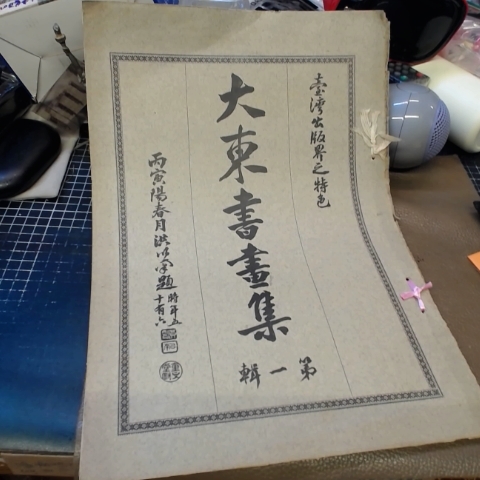 臺灣出版界之特色
大東書畫集
第一輯
丙寅陽春月洪以南題
時年五
十有六